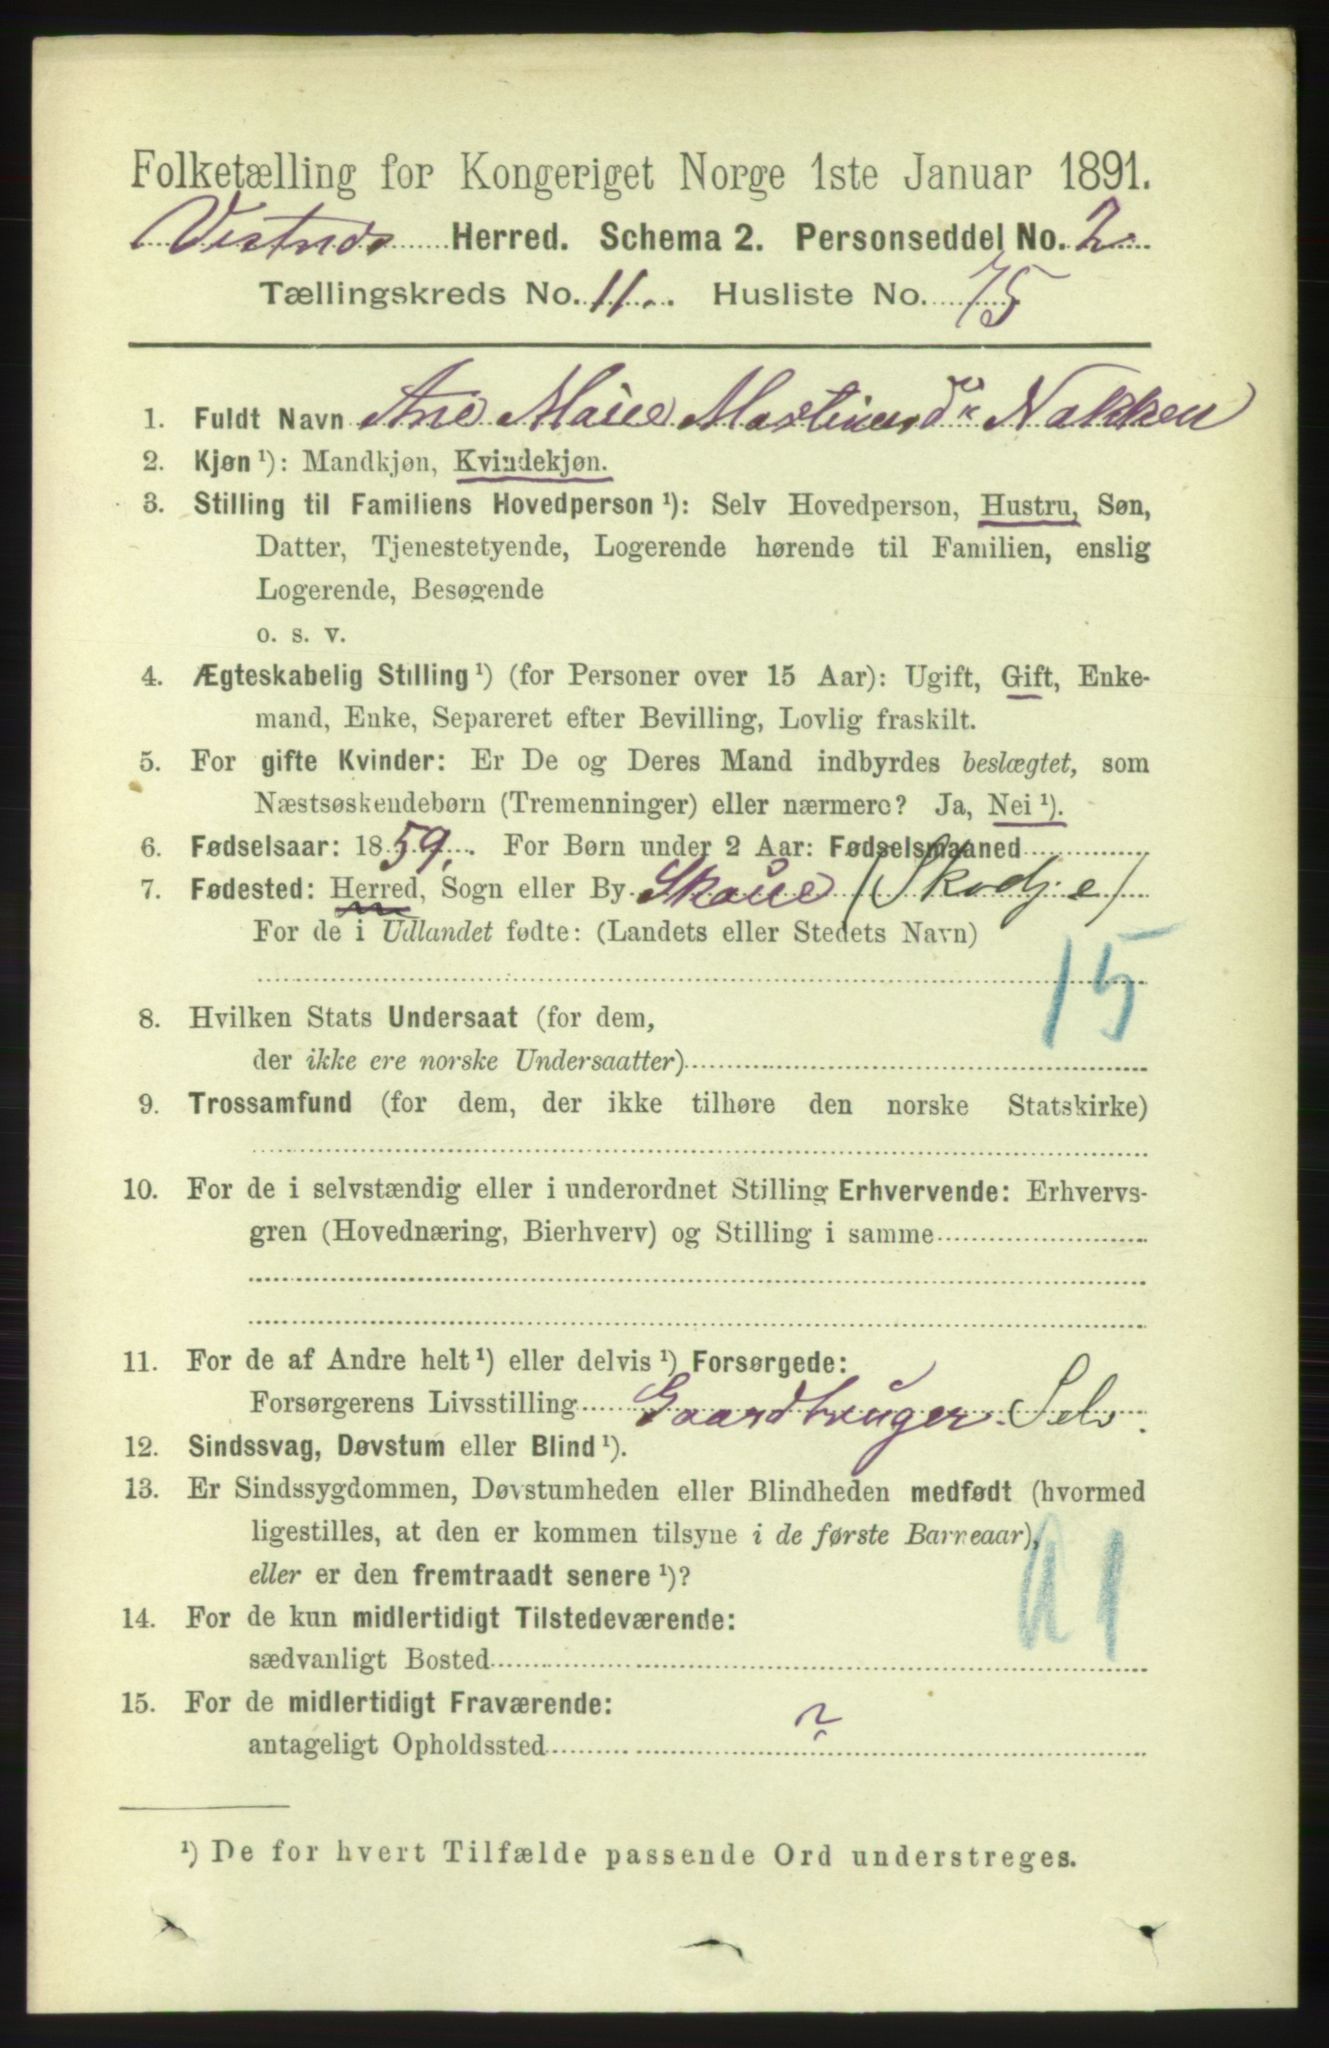 Folketælling for Kongeriget Norge 1ste Januar 1891.
Vestnes Herred. Schema 2. Personseddel No. 2
Tællingskreds No. 11. Husliste No. 75
1. Fuldt Navn Ane Marie Martinusdr Nakken
2. Kjøn ¹): Mandkjøn, Kvindekjøn.
3. Stilling til Familiens Hovedperson ¹): Selv Hovedperson, Hustru, Søn,
Datter, Tjenestetyende, Logerende hørende til Familien, enslig
Logerende, Besøgende
o. s. v.
4. Ægteskabelig Stilling ¹) (for Personer over 15 Aar): Ugift, Gift, Enke-
mand, Enke, Separeret efter Bevilling, Lovlig fraskilt.
5. For gifte Kvinder: Er De og Deres Mand indbyrdes beslægtet, som
Næstsøskendebørn (Tremenninger) eller nærmere? Ja, Nei ¹).
6. Fødselsaar: 1859. For Børn under 2 Aar: Fødselsmaaned
7. Fødested: Herred, Sogn eller By Skoue (Skodje)
For de i Udlandet fødte: (Landets eller Stedets Navn)
15
8. Hvilken Stats Undersaat (for dem,
der ikke ere norske Undersaatter)
9. Trossamfund (for dem, der ikke tilhøre den norske Statskirke)
10. For de i selvstændig eller i underordnet Stilling Erhvervende: Erhvervs-
gren (Hovednæring, Bierhverv) og Stilling i samme
11. For de af Andre helt ¹) eller delvis ¹) Forsørgede:
Forsørgerens Livsstilling Gaardbruger. Selv.
12. Sindssvag, Døvstum eller Blind ¹).
13. Er Sindssygdommen, Døvstumheden eller Blindheden medfødt (hvormed
ligestilles, at den er kommen tilsyne i de første Barneaar),
eller er den fremtraadt senere ¹)?
14. For de kun midlertidigt Tilstedeværende:
sædvanligt Bosted
15. For de midlertidigt Fraværende:
antageligt Opholdssted
¹) De for hvert Tilfælde passende Ord understreges.